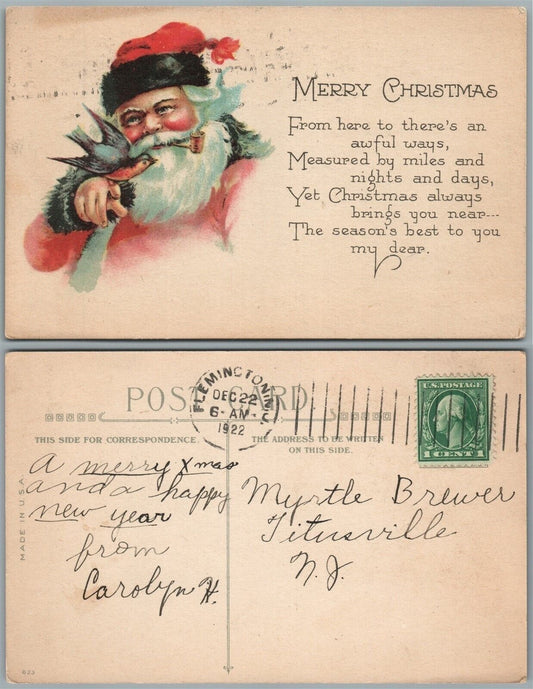 MERRY CHRISTMAS
From here to there's an
awful ways,
Measured by miles and
nights and days,
Yet Christmas always
brings you near---
The season's best to you
my dear.
POST CARD
FLEMINGTON, N.J.
DEC 22
6-AM-
1922
U.S. POSTAGE
1 CENT 1
THIS SIDE FOR CORRESPONDENCE.
THE ADDRESS TO BE WRITTEN
ON THIS SIDE.
A merry Xmas
and a happy
new year
from
Carolyn H.
Myrtle Brewer
Titusville
N. J.
MADE IN U.S.A.